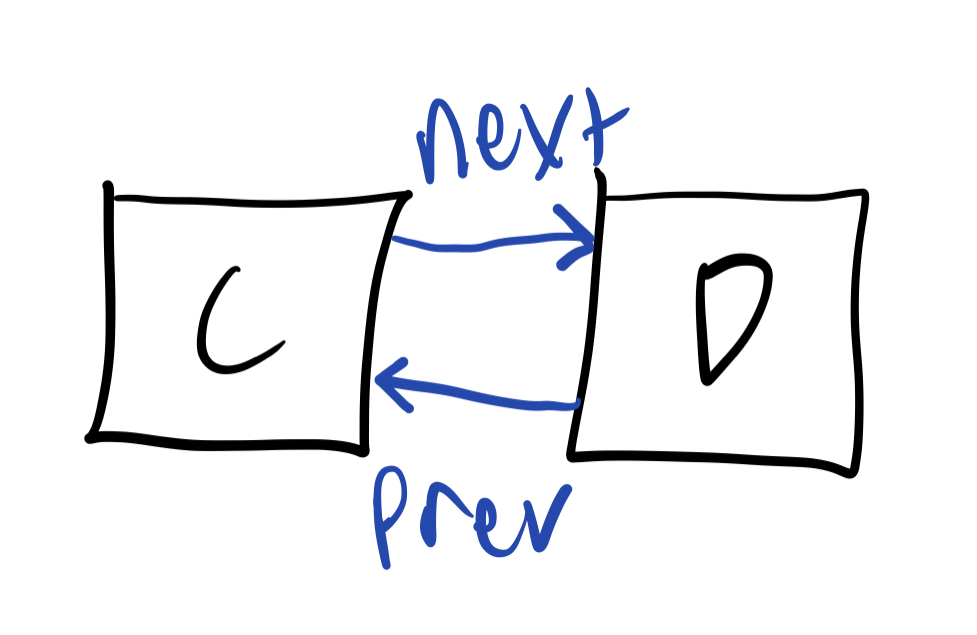 next
C D
prev